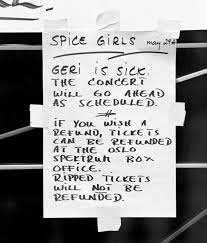 SPICE GIRLS may 29th
GERI IS SICK.
THE CONCERT
WILL GO AHEAD
AS SCHEDULED.
#
IF YOU WISH A
REFUND, TICKETS
CAN BE REFUNDED
AT THE OSLO
SPEKTRUM BOX
OFFICE.
RIPPED TICKETS
WILL NOT BE
REFUNDED.